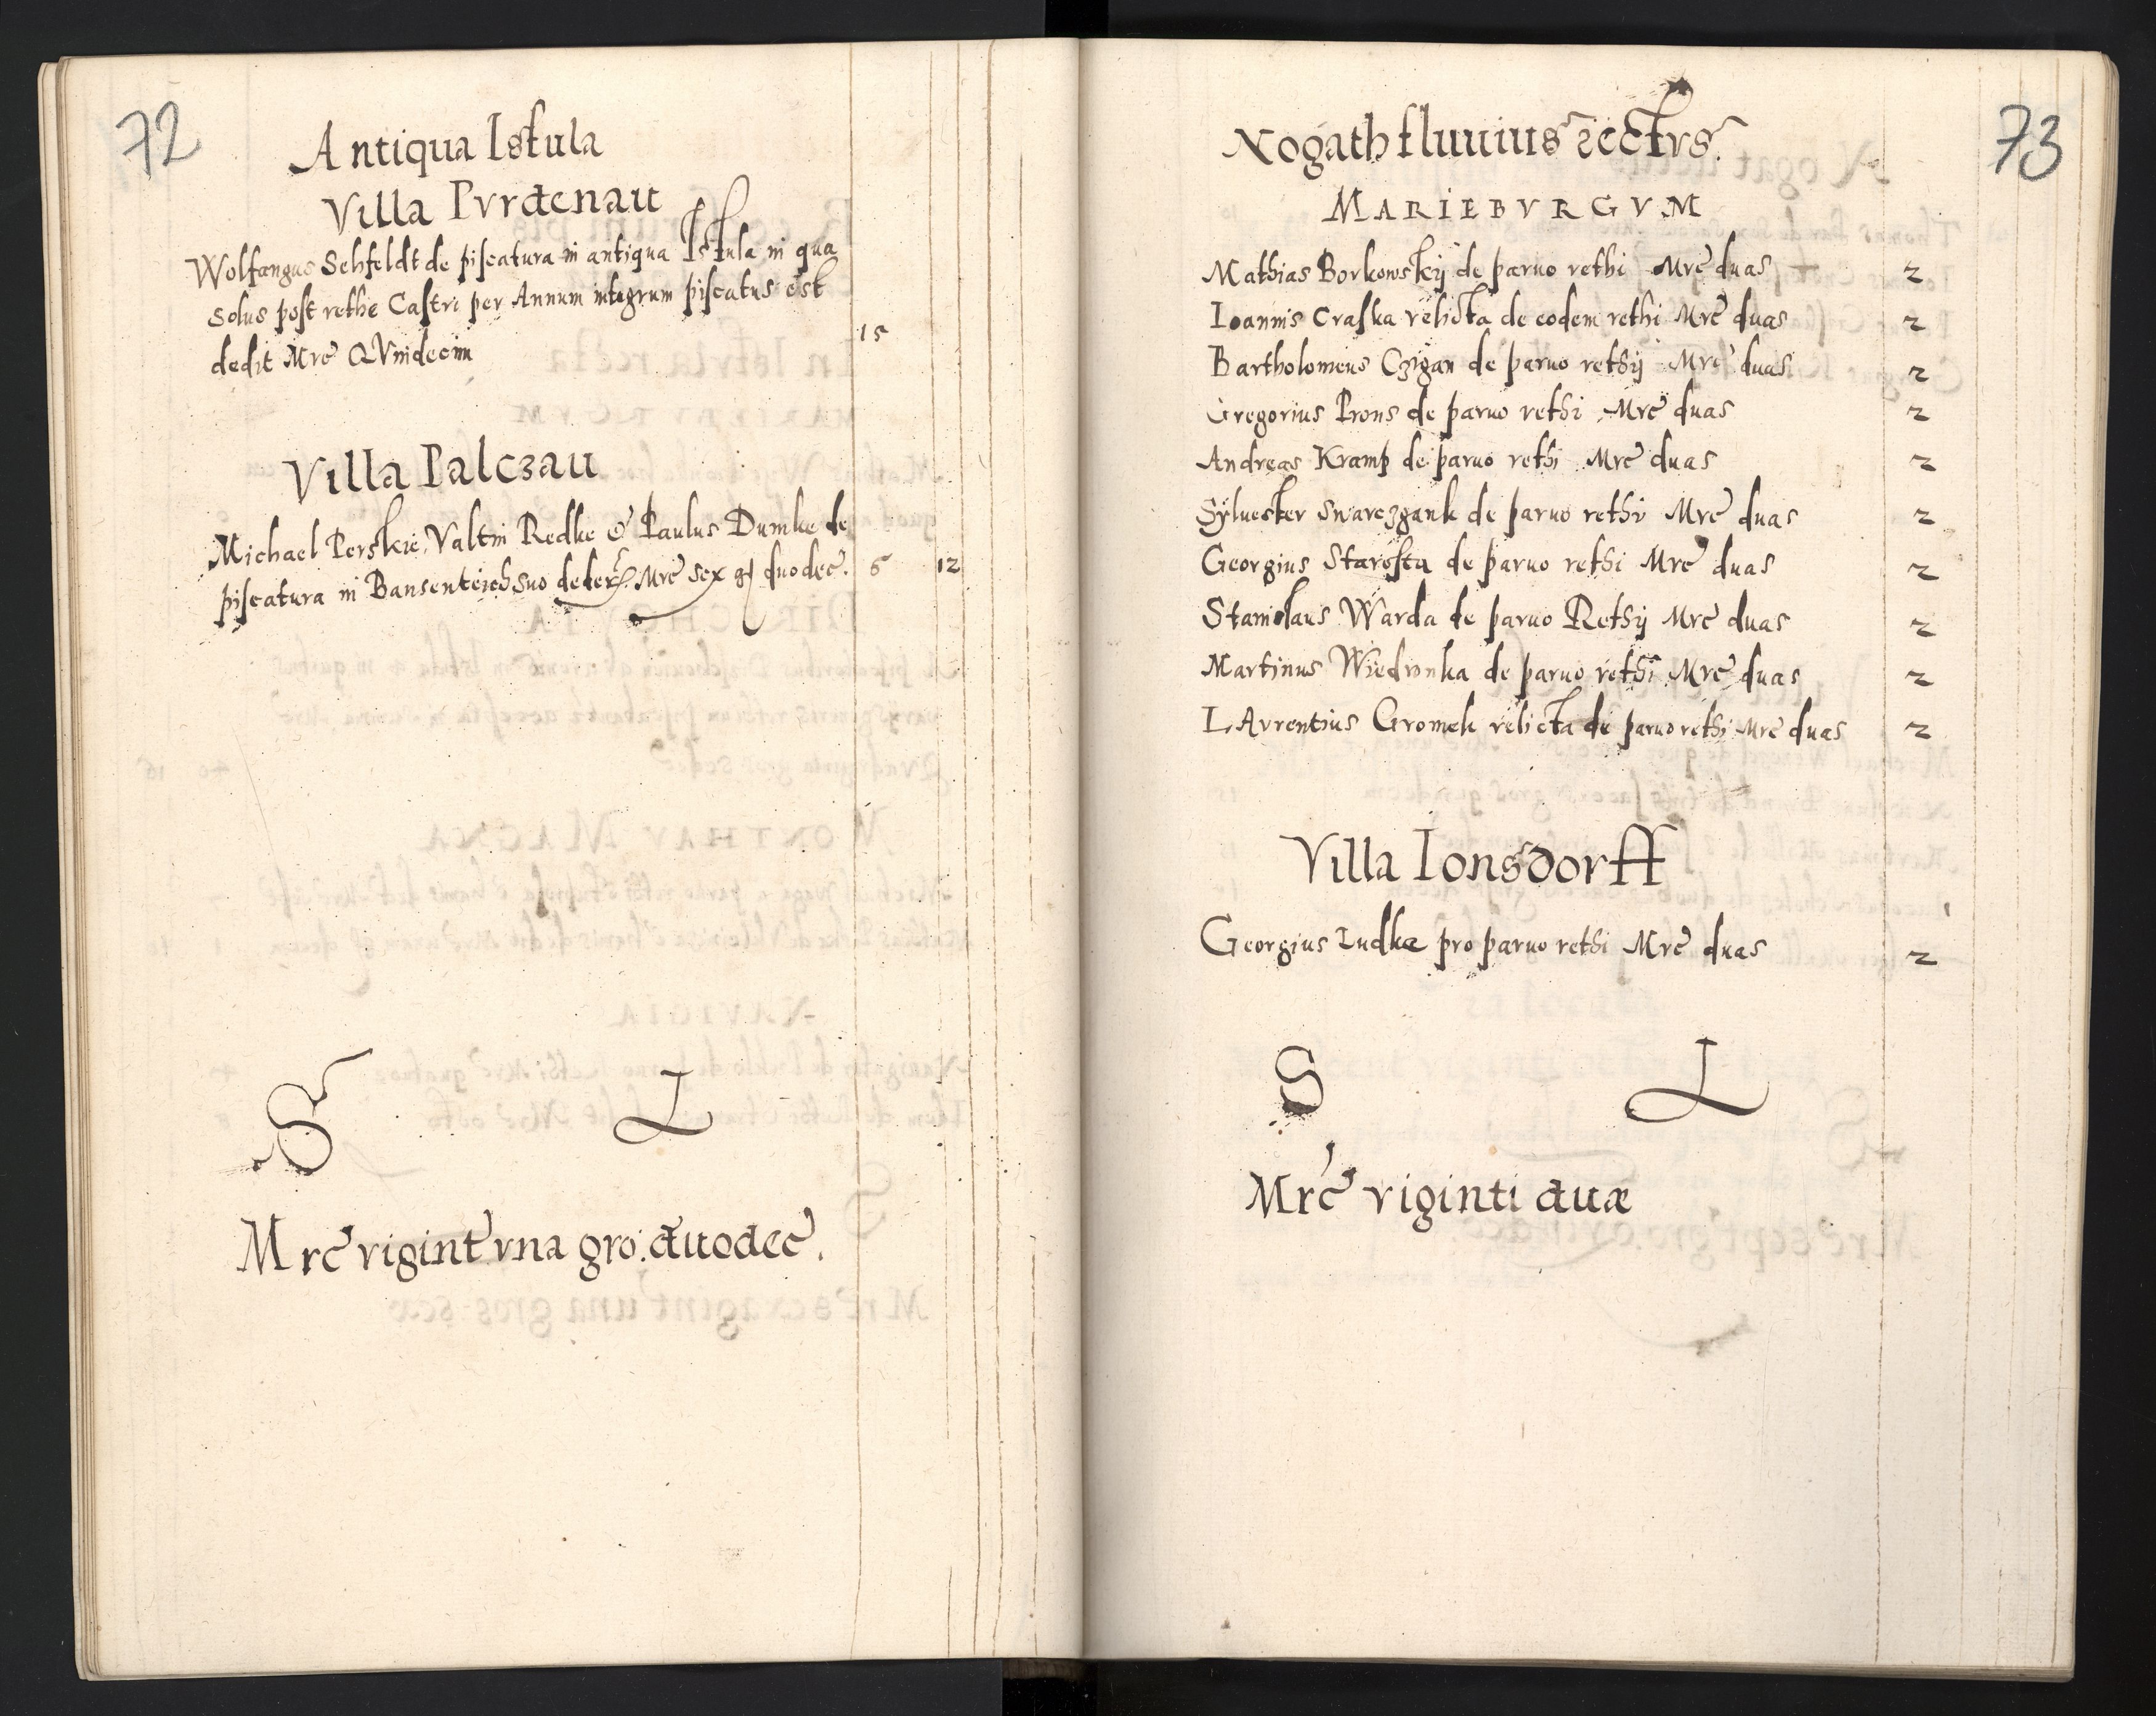 72
Antiqua Istula
Villa Purdenau
Wolfangus Sehfeldt de piscatura in antiqua Istula in qua
solus post rethe Castri per Annum integrum piscatus est
dedit Mrc̄ QVindecim 15
Villa Palczau
Michael Perskie, Valtin Redke & Paulus Dumke de
piscatura in Bansenteich suo Mrc̄ sex duodec̄. 6 12
S L
Mrc̄ vigint vna gro. duodec̄.
73
Nogath fluuius rectus.
MARIEBVRGVM
Mathias Borkowskÿ de paruo rethi Mrc̄ duas 2
Ioannis Craska relicta de eodem rethi Mrc̄ duas 2
Bartholomeus Czigan de paruo rethÿ Mrc̄ duas 2
Gregorius Prons de paruo rethi Mrc̄ duas 2
Andreas Kramp de paruo rethi Mrc̄ duas 2
Syluester Swarczgank de paruo rethi Mrc̄ duas 2
Georgius Starosta de paruo rethi Mrc̄ duas 2
Stanislaus Warda de paruo Rethÿ Mrc̄ duas 2
Martinus Wiedwnka de paruo rethi Mrc̄ duas 2
LAvrentius Gromek relicta de paruo rethi Mrc̄ duas 2
Villa Ionsdorff
Georgius Iudkæ pro paruo rethi Mrc̄ duas 2
S L
Mrc̄ viginti duæ